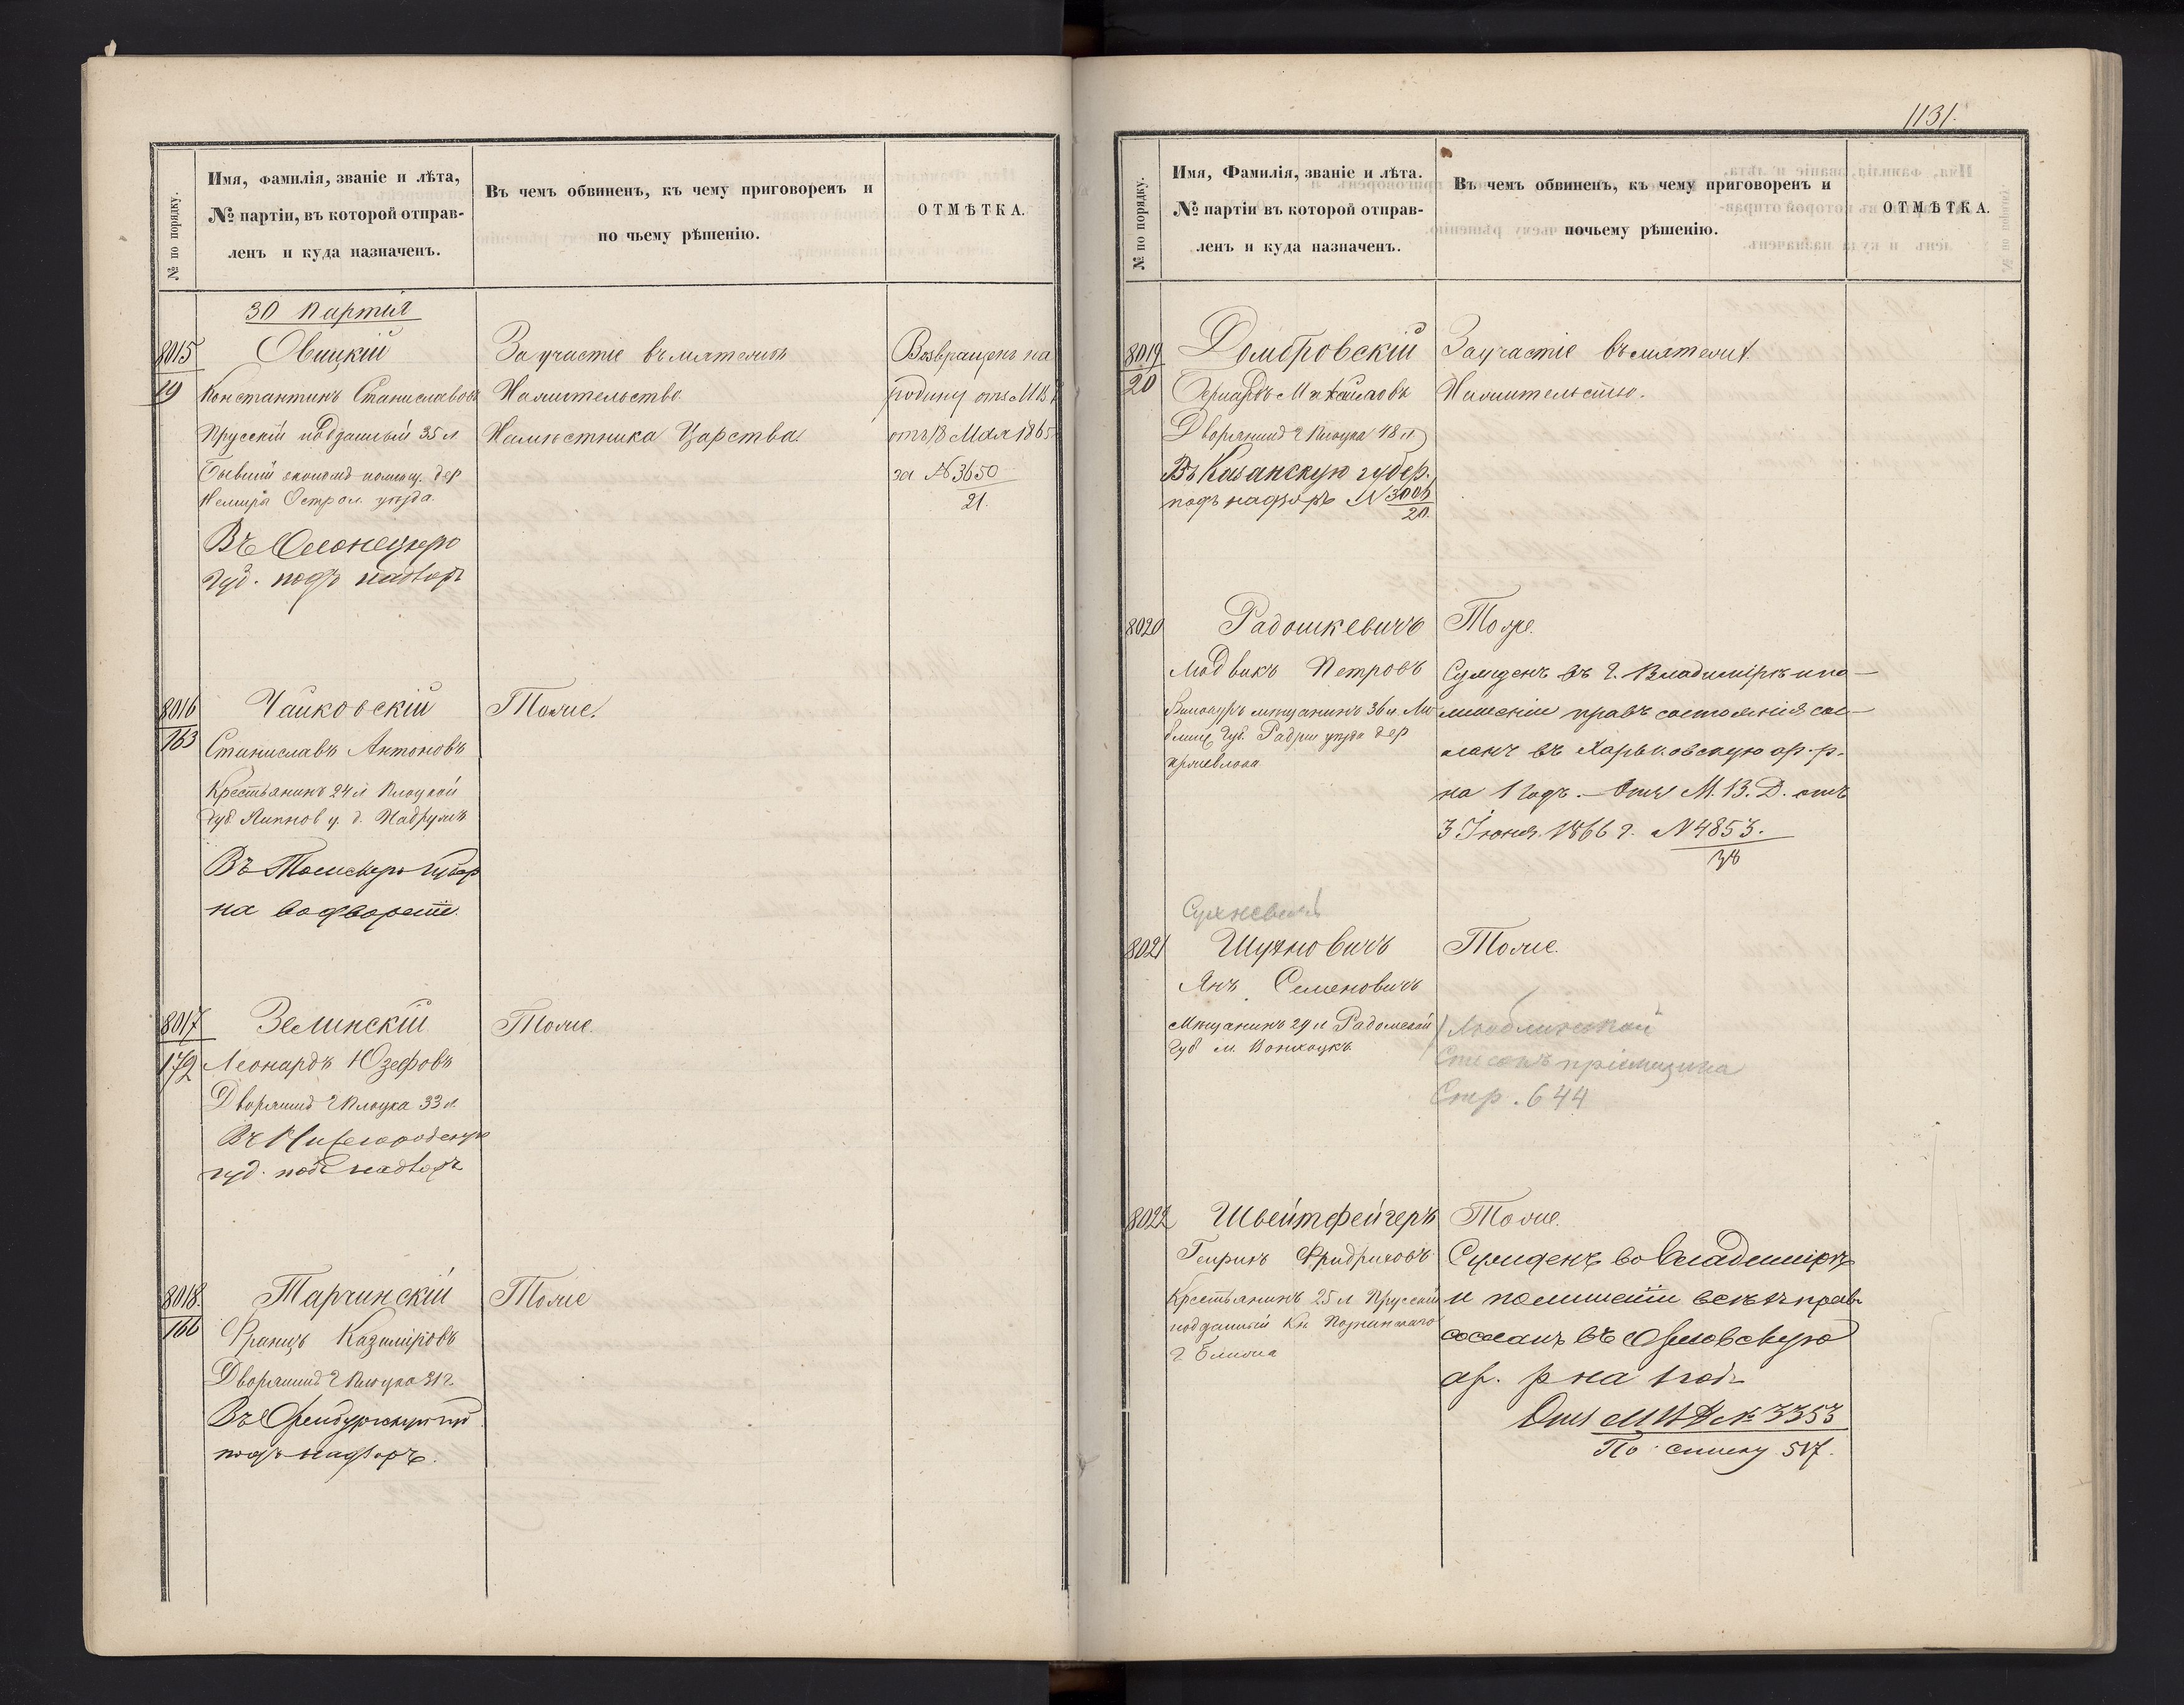 № по порядку.
Имя, фамилія, званіе и лѣта,
№ партіи, въ которой отправ-
ленъ и куда назначенъ.
Въ чемъ обвиненъ, къ чему приговоренъ и
по чьему рѣшенію.
ОТМѢТКА.
30 партія
8015
19
Овицкій
Константинъ Станиславовъ
Прусскій подданный 35 л
Бывшій экономъ помѣщ. дер
Остров. уѣзда.
Въ Олонецкую
Губ. подъ надзоръ
За участіе въ мятежѣ
Намѣстника Царства.
Возвращенъ на
родину отъ МВД
отъ 18 Мая 1865
за № 3650
21.
8016
163
Чайковскій
Станиславъ Антоновъ
Крестьянинъ 24 л Плоцкой
Губ. Липнов у. д.
Въ Томскую Губер
на водворенiе.
Тоже.
8017
172
Зелинскій
Леонардъ Юзефовъ
Дворянинъ г Плоцка 33 л.
Въ Нижегородскую
губ. подъ надзоръ
Тоже.
8018.
166
Тарчинскій
Францъ Казиміровъ
Дворянинъ г Плоцка 31 г.
Въ Оренбургскую губ
подъ надзоръ.
Тоже
1131.
№ по порядку.
Имя, Фамилія, званіе и лѣта.
№ партіи въ которой отправ-
ленъ и куда назначенъ.
Въ чемъ обвиненъ, къ чему приговоренъ и
почьему рѣшенію.
ОТМѢТКА.
8019
20
Домбровскій
Михайловъ
Дворянинъ г Плоцка 48 л.
Въ Казанскую губер.
подъ надзоръ №
20.
За участіе въ мятежѣ
8020
Радошкевичъ
Людвикъ Петровъ
Винокуръ мѣщанинъ 36 л. Лю
блинс Губ. Радзин уѣзда дер
Тоже.
Сужденъ въ г. Владимірѣ и по
лишеніи правъ состоянія сос
ланъ въ Харьковскую ар. р.
на 1 годъ. — Отн. М. В. Д. отъ
3 Іюня 1866 г. № 4853.
38
Сухневичъ
8021
Шухновичъ
Янъ Семеновичъ
Мѣщанинъ 29 л Радомской
Губ м. Вонхоцкъ.
Тоже.
Люблинской
Списокъ
Стр. 644
8022
Швейтфейгеръ
Генрихъ Фридриховъ
Крестьянинъ 25 л Прусскій
подданный Кн. Познанскаго
г
Тоже.
Сужденъ во Владимірѣ
и по лишеніи всѣхъ правъ
сосланъ въ Орловскую
ар. р на 1 годъ
Отн МВД № 3353
По списку 517.